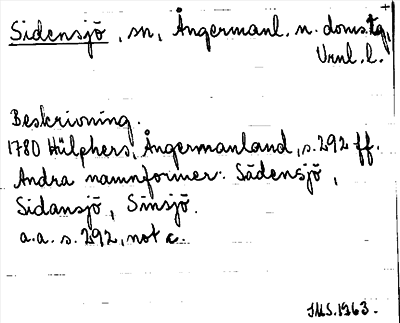 Sidensjö, sn, Ångermanl. n. doms.tg,
Vrnl. l.
Beskrivning.
1780 Hülphers, Ångermanland, s. 292 ff.
Andra namnformer: Sädensjö,
Sidansjö, Sinsjö.
a.a. s. 292, not c.
JMS. 1963.